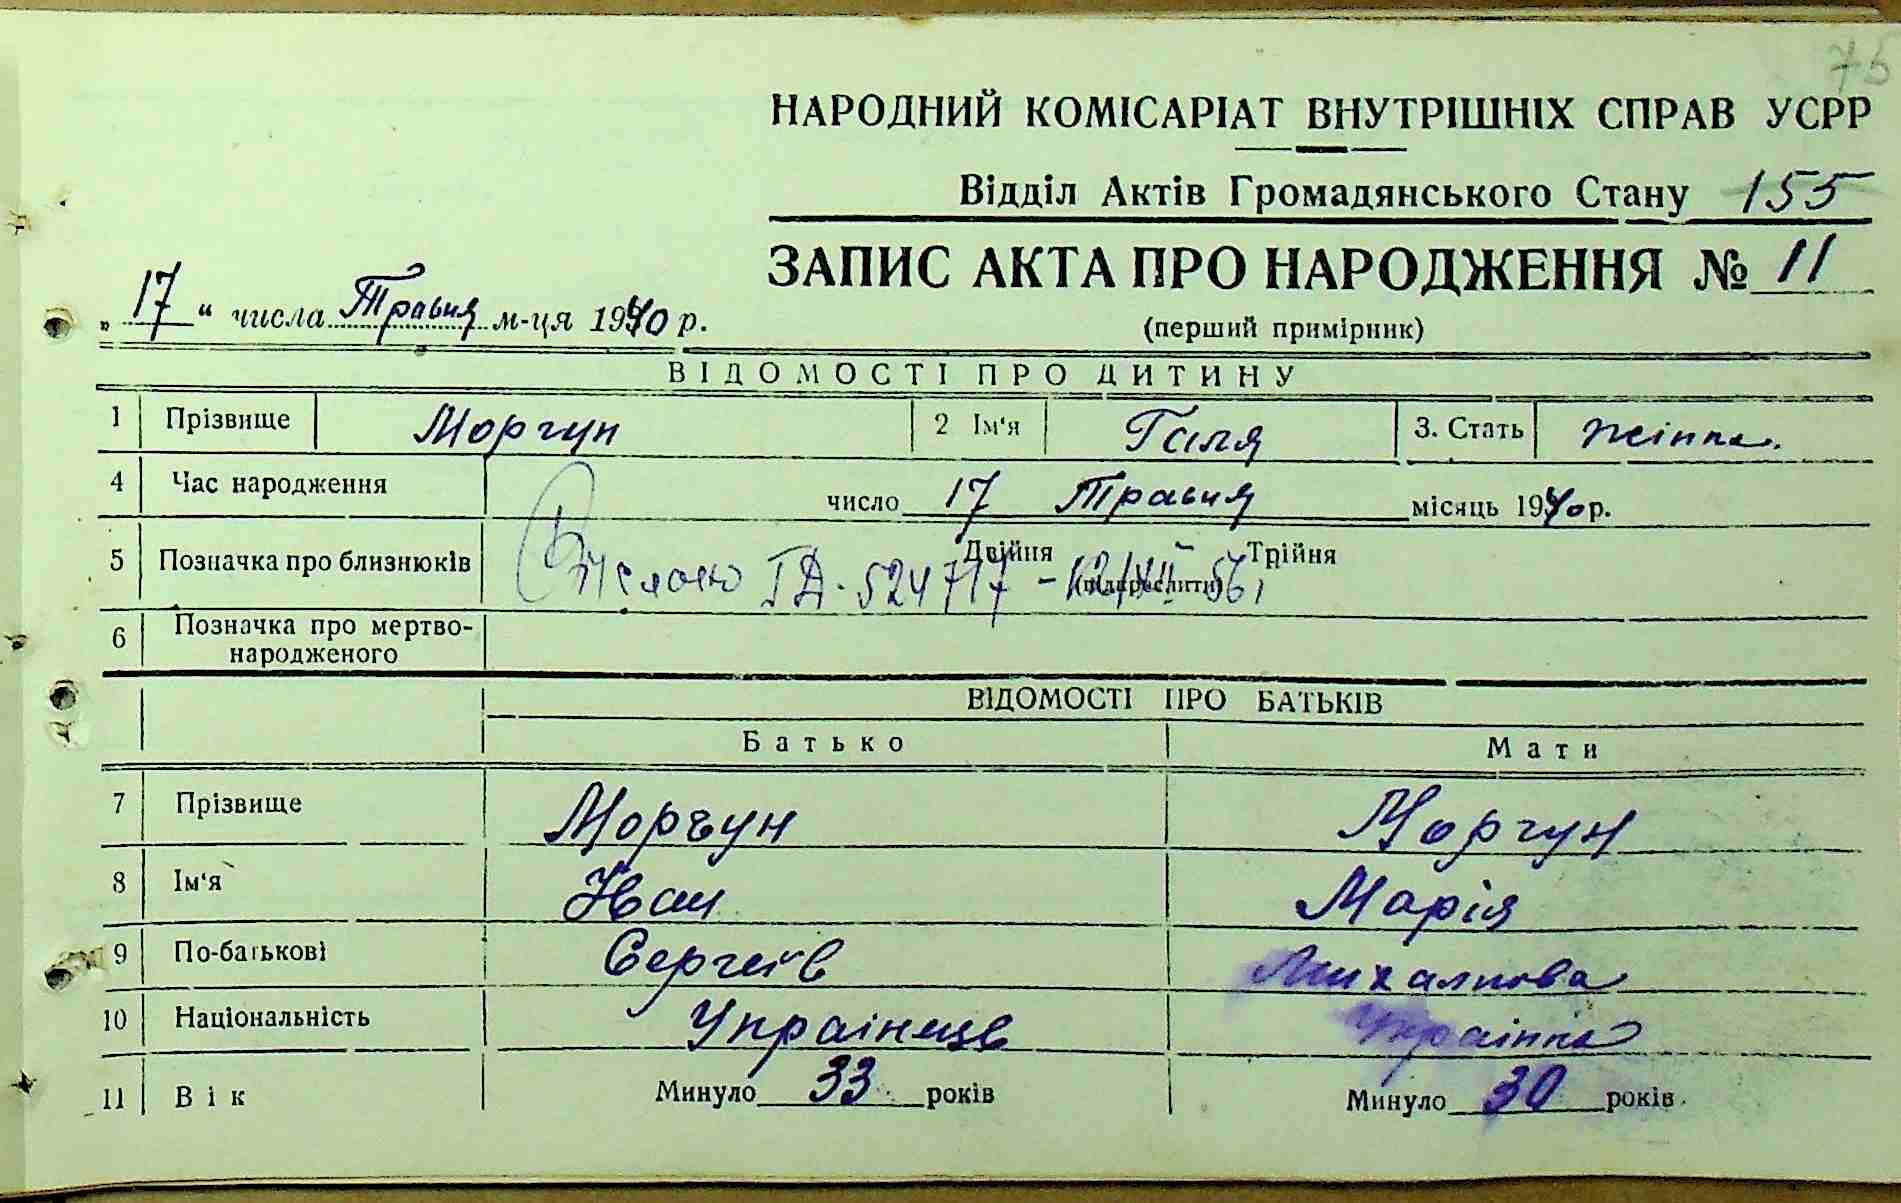 75
НАРОДНИЙ КОМІСАРІАТ ВНУТРІШНІХ СПРАВ УСРР
Відділ Актів Громадянського Стану 155
ЗАПИС АКТА ПРО НАРОДЖЕННЯ № 11
„ 17 " числа Травня м-ця 1940 р.
(перший примірник)
ВІДОМОСТІ ПРО ДИТИНУ
1 Прізвище Моргун 2 Ім'я Галя 3. Стать жінка.
4 Час народження число 17 Травня місяць 1940 р.
5 Позначка про близнюків Двійня Трійня
(підкреслити)
ІД. 524717 - 12/XII 56
6 Позначка про мертво-
народженого
ВІДОМОСТІ ПРО БАТЬКІВ
Батько Мати
7 Прізвище Моргун Моргун
8 Ім'я Иван Марія
9 По-батькові Сергеїв Михалкова
10 Національність Українець Українка
11 Вік Минуло 33 років Минуло 30 років